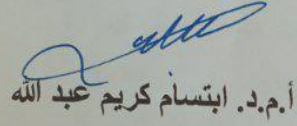 أ.م.د. ابتسام كريم عبد الله